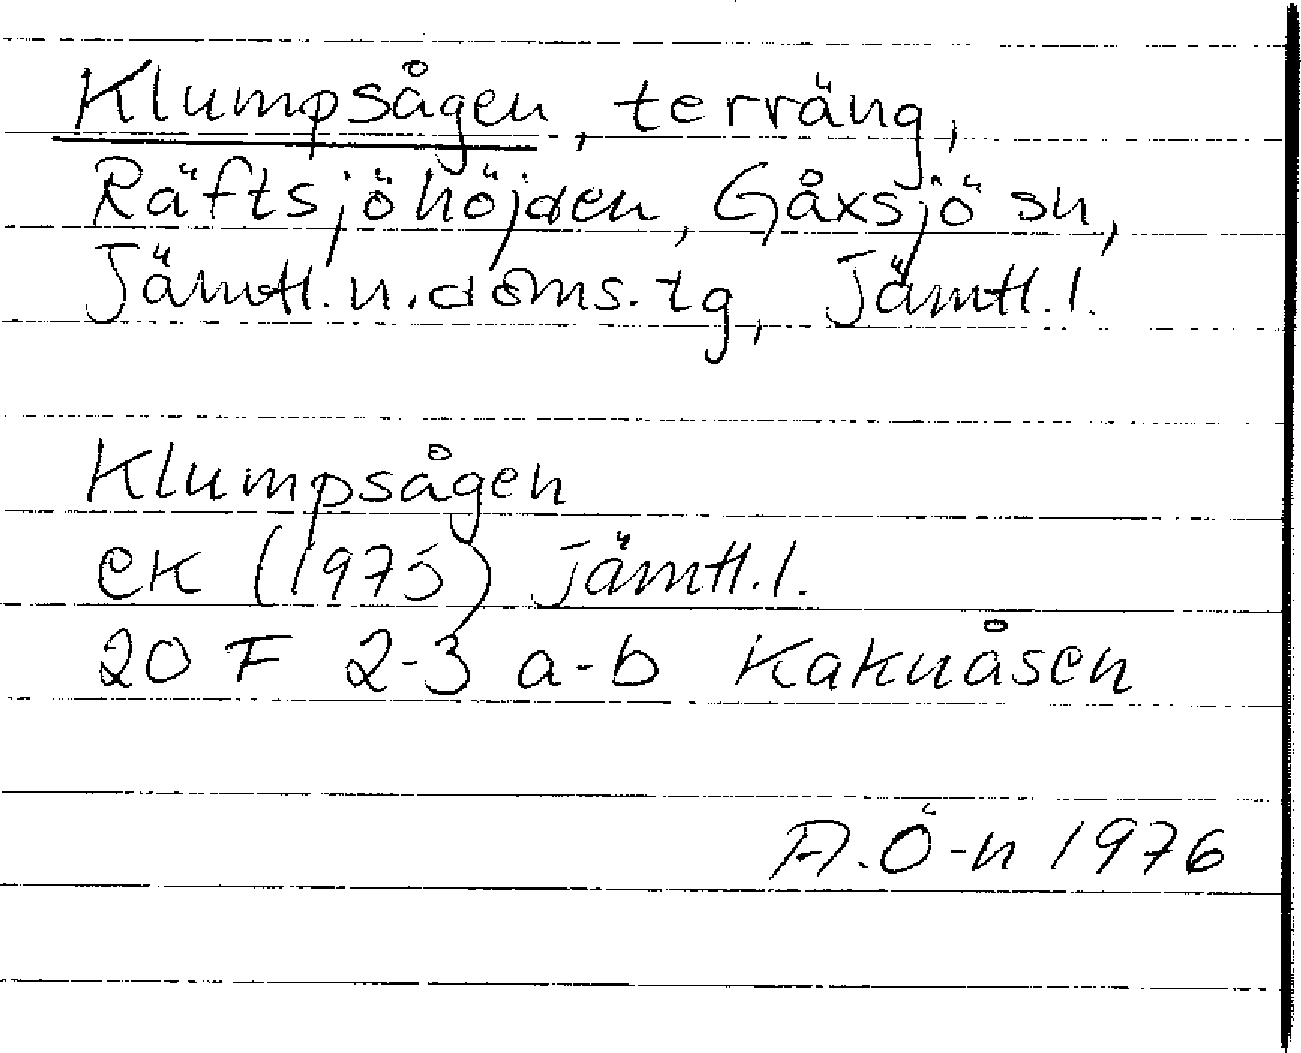 Klumpsågen, terräng,
Räftsjöhöjden, Gåxsjö sn,
Jämtl. n. doms. tg, Jämtl. l.
Klumpsågen
ek (1975) Jämtl. l.
20 F 2-3 a-b Kakuåsen
A. Ö-n 1976